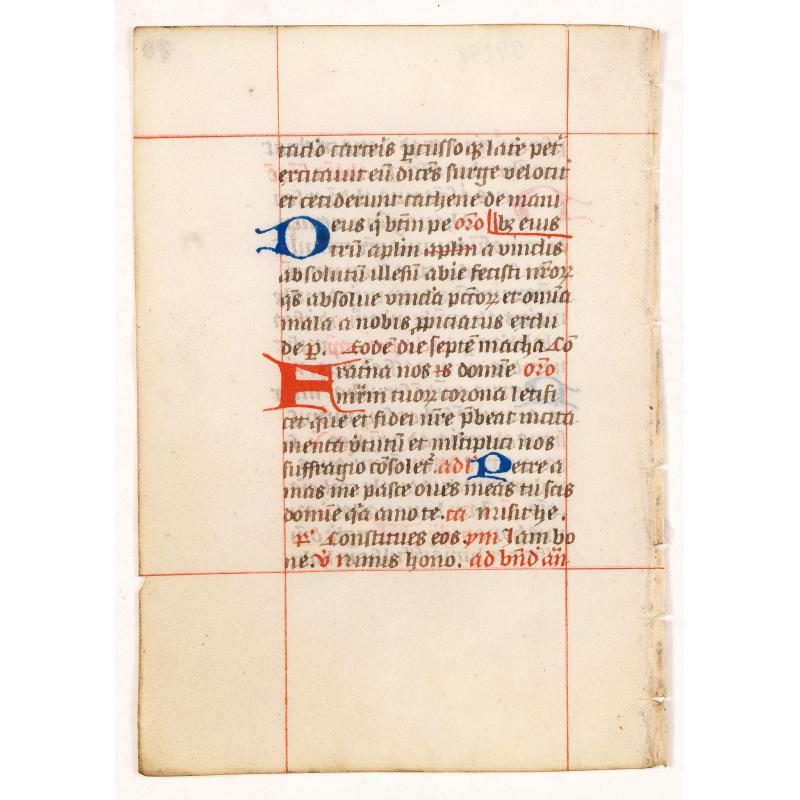 taclo carceis pcussoq̃ late pet
excitauit eũ dicẽs surge velocit
et ceciderunt cathene de mani
Deus q̇ btm̃ pe oro bʒ eius
trũ aplm̃ aplm̃ a vinclis
absolutũ illesũ abire fecisti nr̃oꝝ
q̃s absolue vincla pctõꝝ et omia
mala a nobis ꝓpiciatus exclu
de p. Eodẽ die septẽ macha Cõ
Fratna nos domie oro
mrẽm tuoꝝ corona letifi
cet que et fidei nr̃e p̃beat incita
menta v̓tutũ et mltiplici nos
suffragio cõsolet̃. ad Petre a
mas me pasce oues meas tu scis
domie q̇a amo te. ca nisit he.
p̓ Constitues eos. ym Iam bo
ne. v̓ nimis hono. ad bnd̃ añ